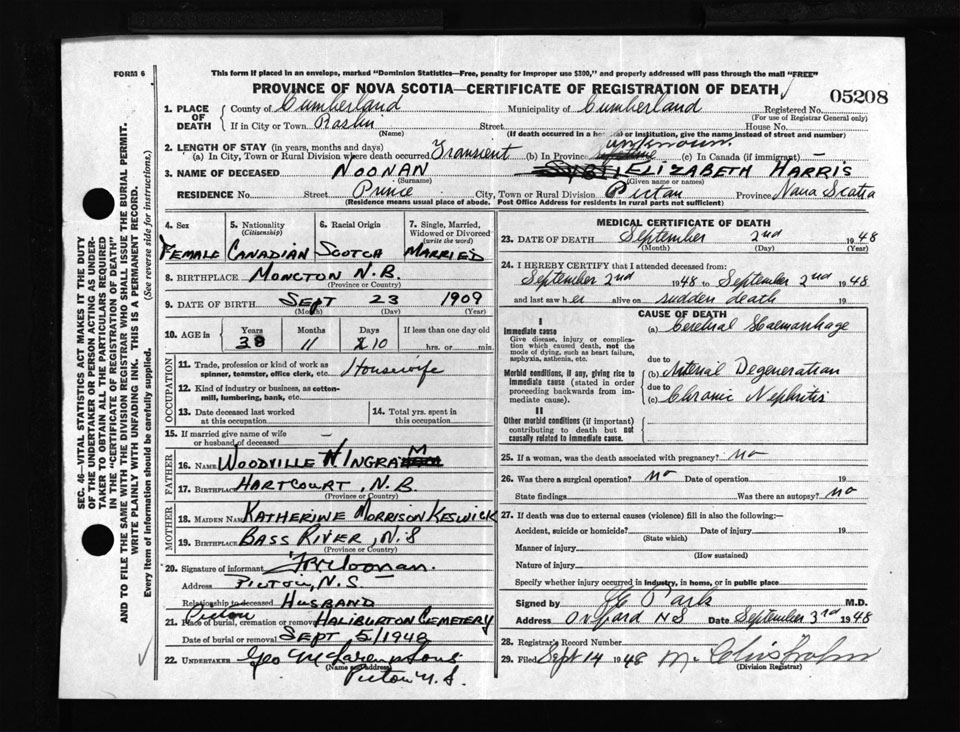 FORM 6
This form if placed in an envelope, marked "Dominion Statistics—Free, penalty for improper use $300," and properly addressed will pass through the mail "FREE"
PROVINCE OF NOVA SCOTIA—CERTIFICATE OF REGISTRATION OF DEATH
05208
1. PLACE OF DEATH
County of Cumberland Municipality of Cumberland Registered No.
(For use of Registrar General only)
If in City or Town Street House No.
(Name) (If death occurred in a hospital or institution, give the name instead of street and number)
2. LENGTH OF STAY (in years, months and days) unknown
(a) In City, Town or Rural Division where death occurred Transient (b) In Province (c) In Canada (if immigrant) —
3. NAME OF DECEASED NOONAN ELIZABETH HARRIS
(Given name or names)
RESIDENCE No. Street Prince City, Town or Rural Division Pictou Province Nova Scotia
(Residence means usual place of abode. Post Office Address for residents in rural parts not sufficient)
4. Sex 5. Nationality (Citizenship) 6. Racial Origin 7. Single, Married, Widowed or Divorced (write the word)
FEMALE CANADIAN SCOTCH MARRIED
8. BIRTHPLACE MONCTON N.B.
(Province or Country)
9. DATE OF BIRTH SEPT 23 1909
(Month) (Day) (Year)
10. AGE in Years Months Days If less than one day old
38 11 10 hrs. or min.
OCCUPATION
11. Trade, profession or kind of work as spinner, teamster, office clerk, etc. Housewife
12. Kind of industry or business, as cotton-mill, lumbering, bank, etc.
13. Date deceased last worked at this occupation
14. Total yrs. spent in this occupation
15. If married give name of wife or husband of deceased —
FATHER
16. NAME WOODVILLE H INGRAM
17. BIRTHPLACE HARTCOURT, N.B.
(Province or Country)
MOTHER
18. MAIDEN NAME KATHERINE MORRISON KESWICK
19. BIRTHPLACE BASS RIVER, N.S
(Province or Country)
20. Signature of informant Noonan.
Address PICTOU, N.S.
Relationship to deceased HUSBAND
Pictou
21. Place of burial, cremation or removal HALIBURTON CEMETERY
Date of burial or removal SEPT 5/1948
22. UNDERTAKER Geo McLaren & Sons
(Name and address)
Pictou N.S.
MEDICAL CERTIFICATE OF DEATH
23. DATE OF DEATH September 2nd 1948
(Month) (Day) (Year)
24. I HEREBY CERTIFY that I attended deceased from:
September 2nd 1948 to September 2nd 1948
and last saw her alive on sudden death 19
CAUSE OF DEATH
I
Immediate cause
Give disease, injury or complication which caused death, not the mode of dying, such as heart failure, asphyxia, asthenia, etc.
(a) Cerebral Haemorrhage
due to
Morbid conditions, if any, giving rise to immediate cause (stated in order proceeding backwards from immediate cause).
(b) Arterial Degeneration
due to
(c) Chronic Nephritis
II
Other morbid conditions (if important) contributing to death but not causally related to immediate cause.
25. If a woman, was the death associated with pregnancy? no
26. Was there a surgical operation? no Date of operation 19
State findings Was there an autopsy? no
27. If death was due to external causes (violence) fill in also the following:—
Accident, suicide or homicide? Date of injury 19
(State which)
Manner of injury
(How sustained)
Nature of injury
Specify whether injury occurred in industry, in home, or in public place
Signed by Park M.D.
Address Oxford NS Date September 3rd 1948
28. Registrar's Record Number
29. Filed Sept 14 1948
(Division Registrar)
SEC. 46—VITAL STATISTICS ACT MAKES IT THE DUTY
OF THE UNDERTAKER OR PERSON ACTING AS UNDERTAKER TO OBTAIN ALL THE PARTICULARS REQUIRED
IN THE "CERTIFICATE OF REGISTRATION OF DEATH"
AND TO FILE THE SAME WITH THE DIVISION REGISTRAR WHO SHALL ISSUE THE BURIAL PERMIT.
WRITE PLAINLY WITH UNFADING INK. THIS IS A PERMANENT RECORD.
Every item of Information should be carefully supplied. (See reverse side for instructions.)